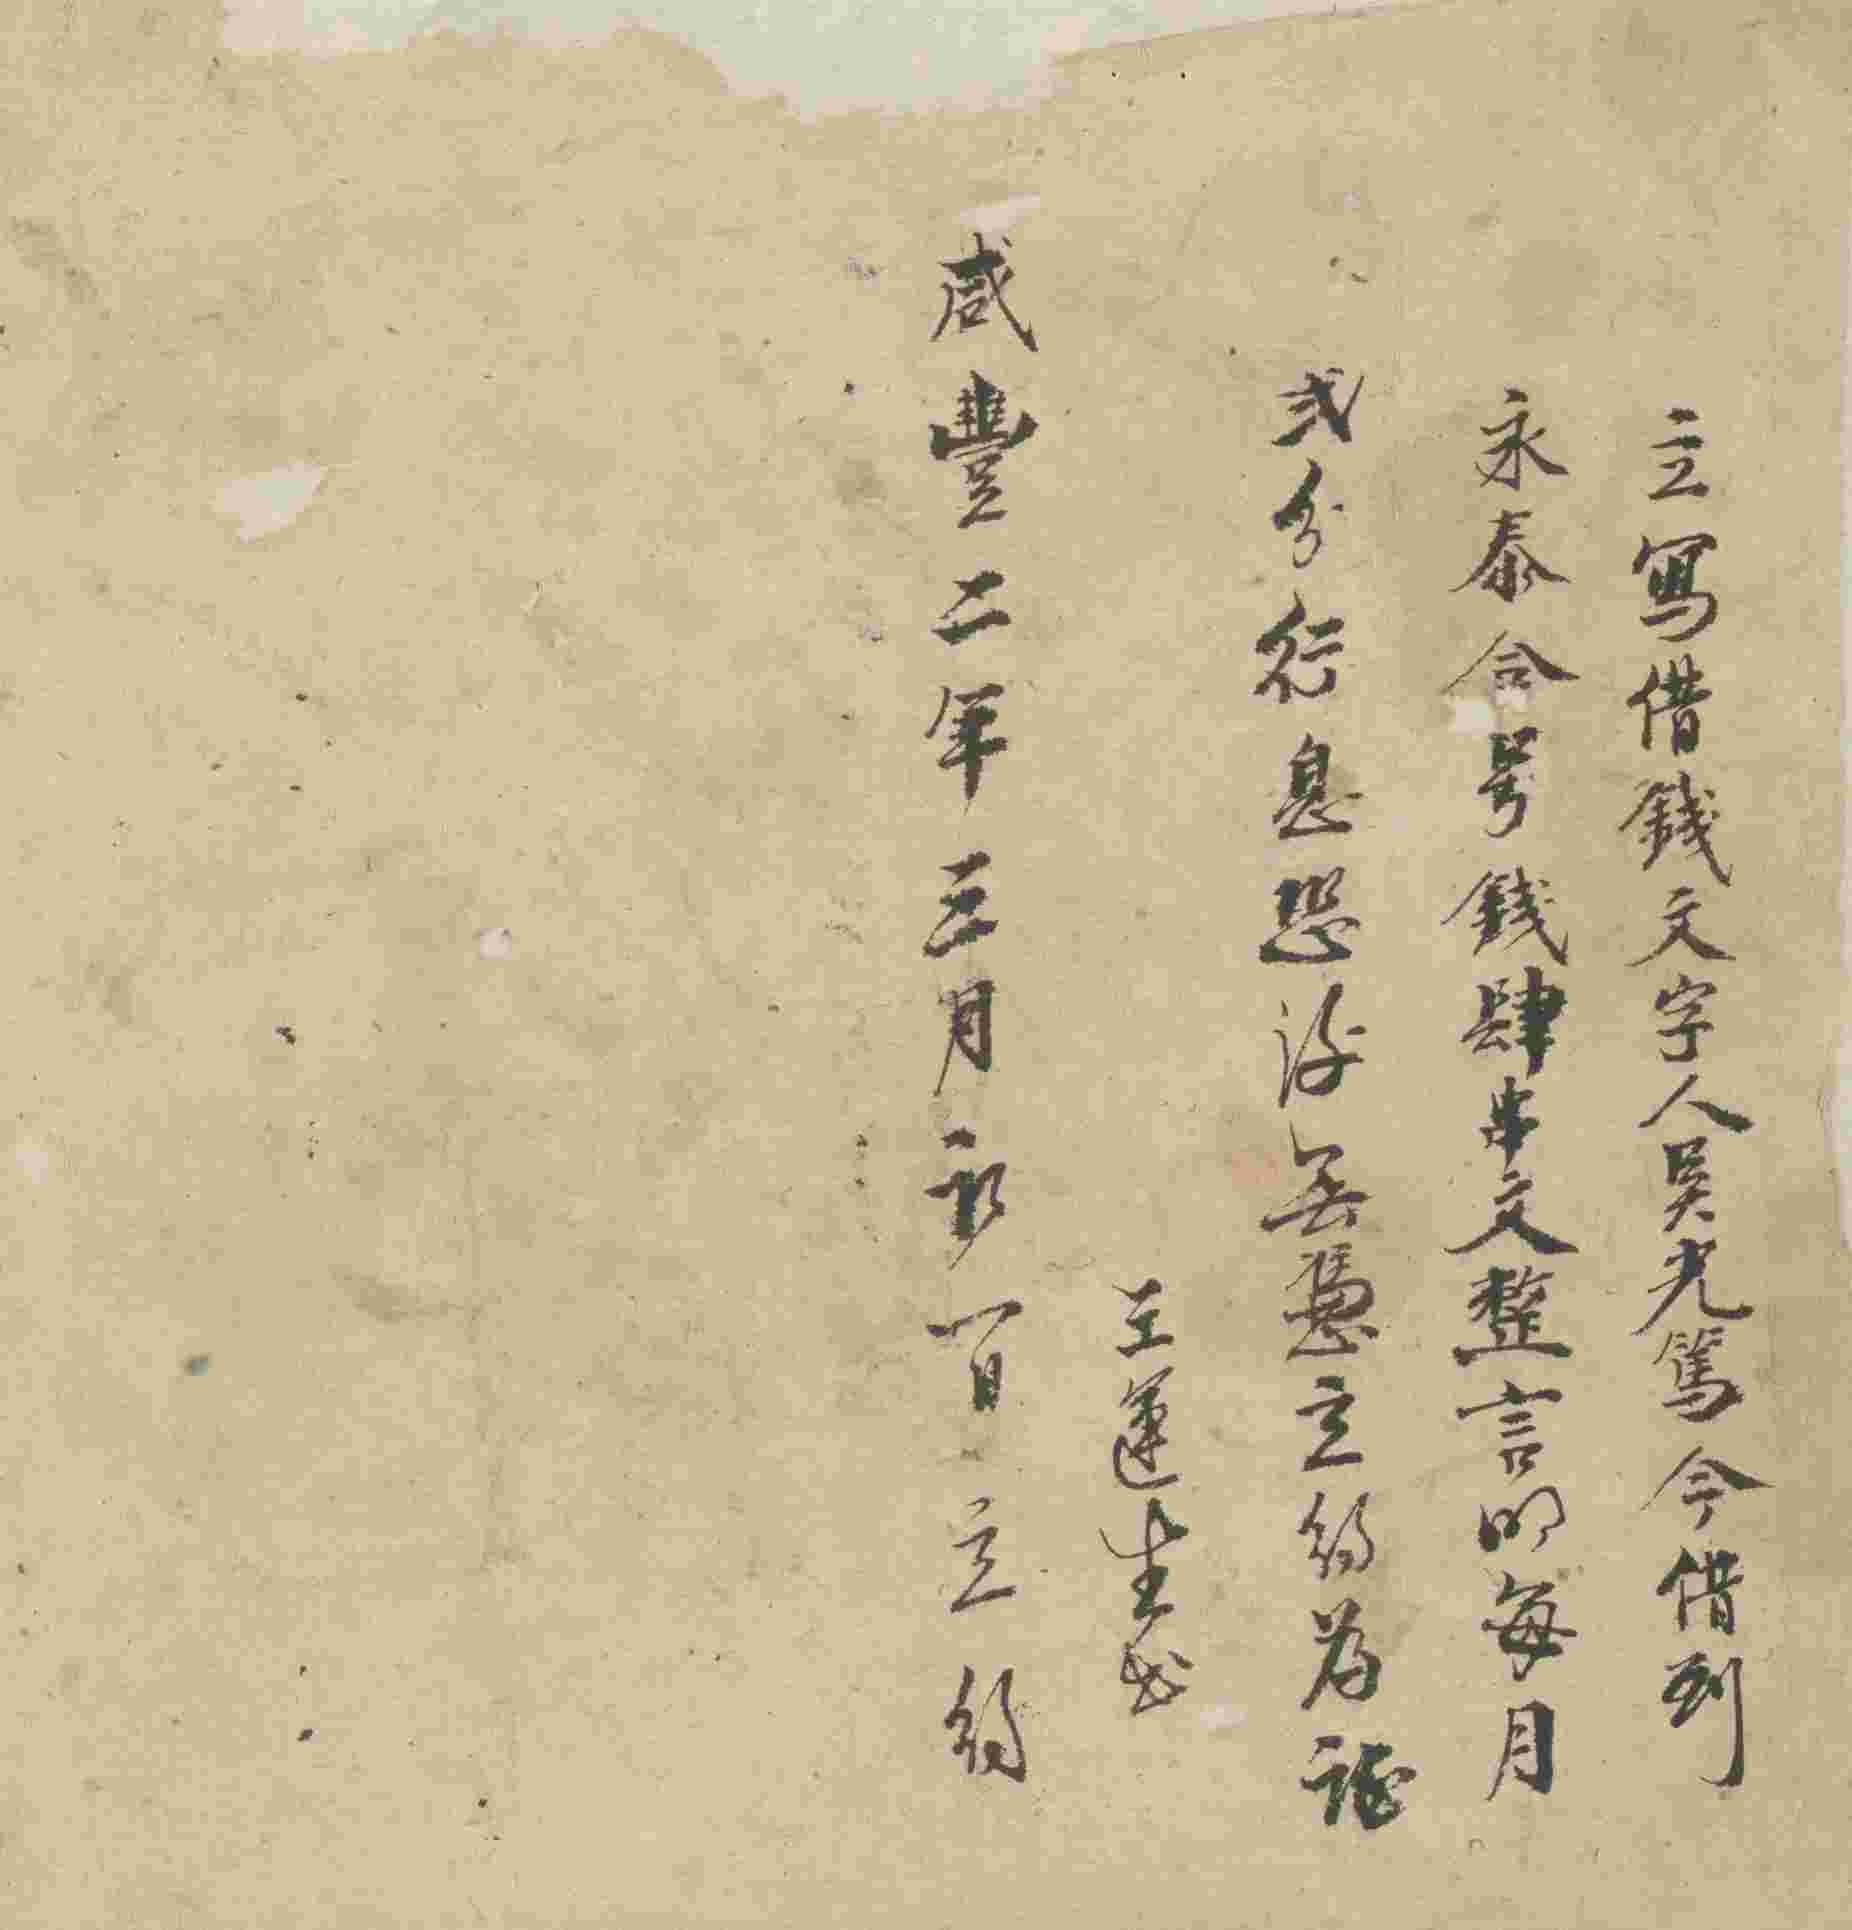 立寫借錢文字人吳光篤今借到
永泰合号錢肆串文整言明每月
弍分行息恐後無憑立約為証
王運生书
咸豐二年三月初一日立約